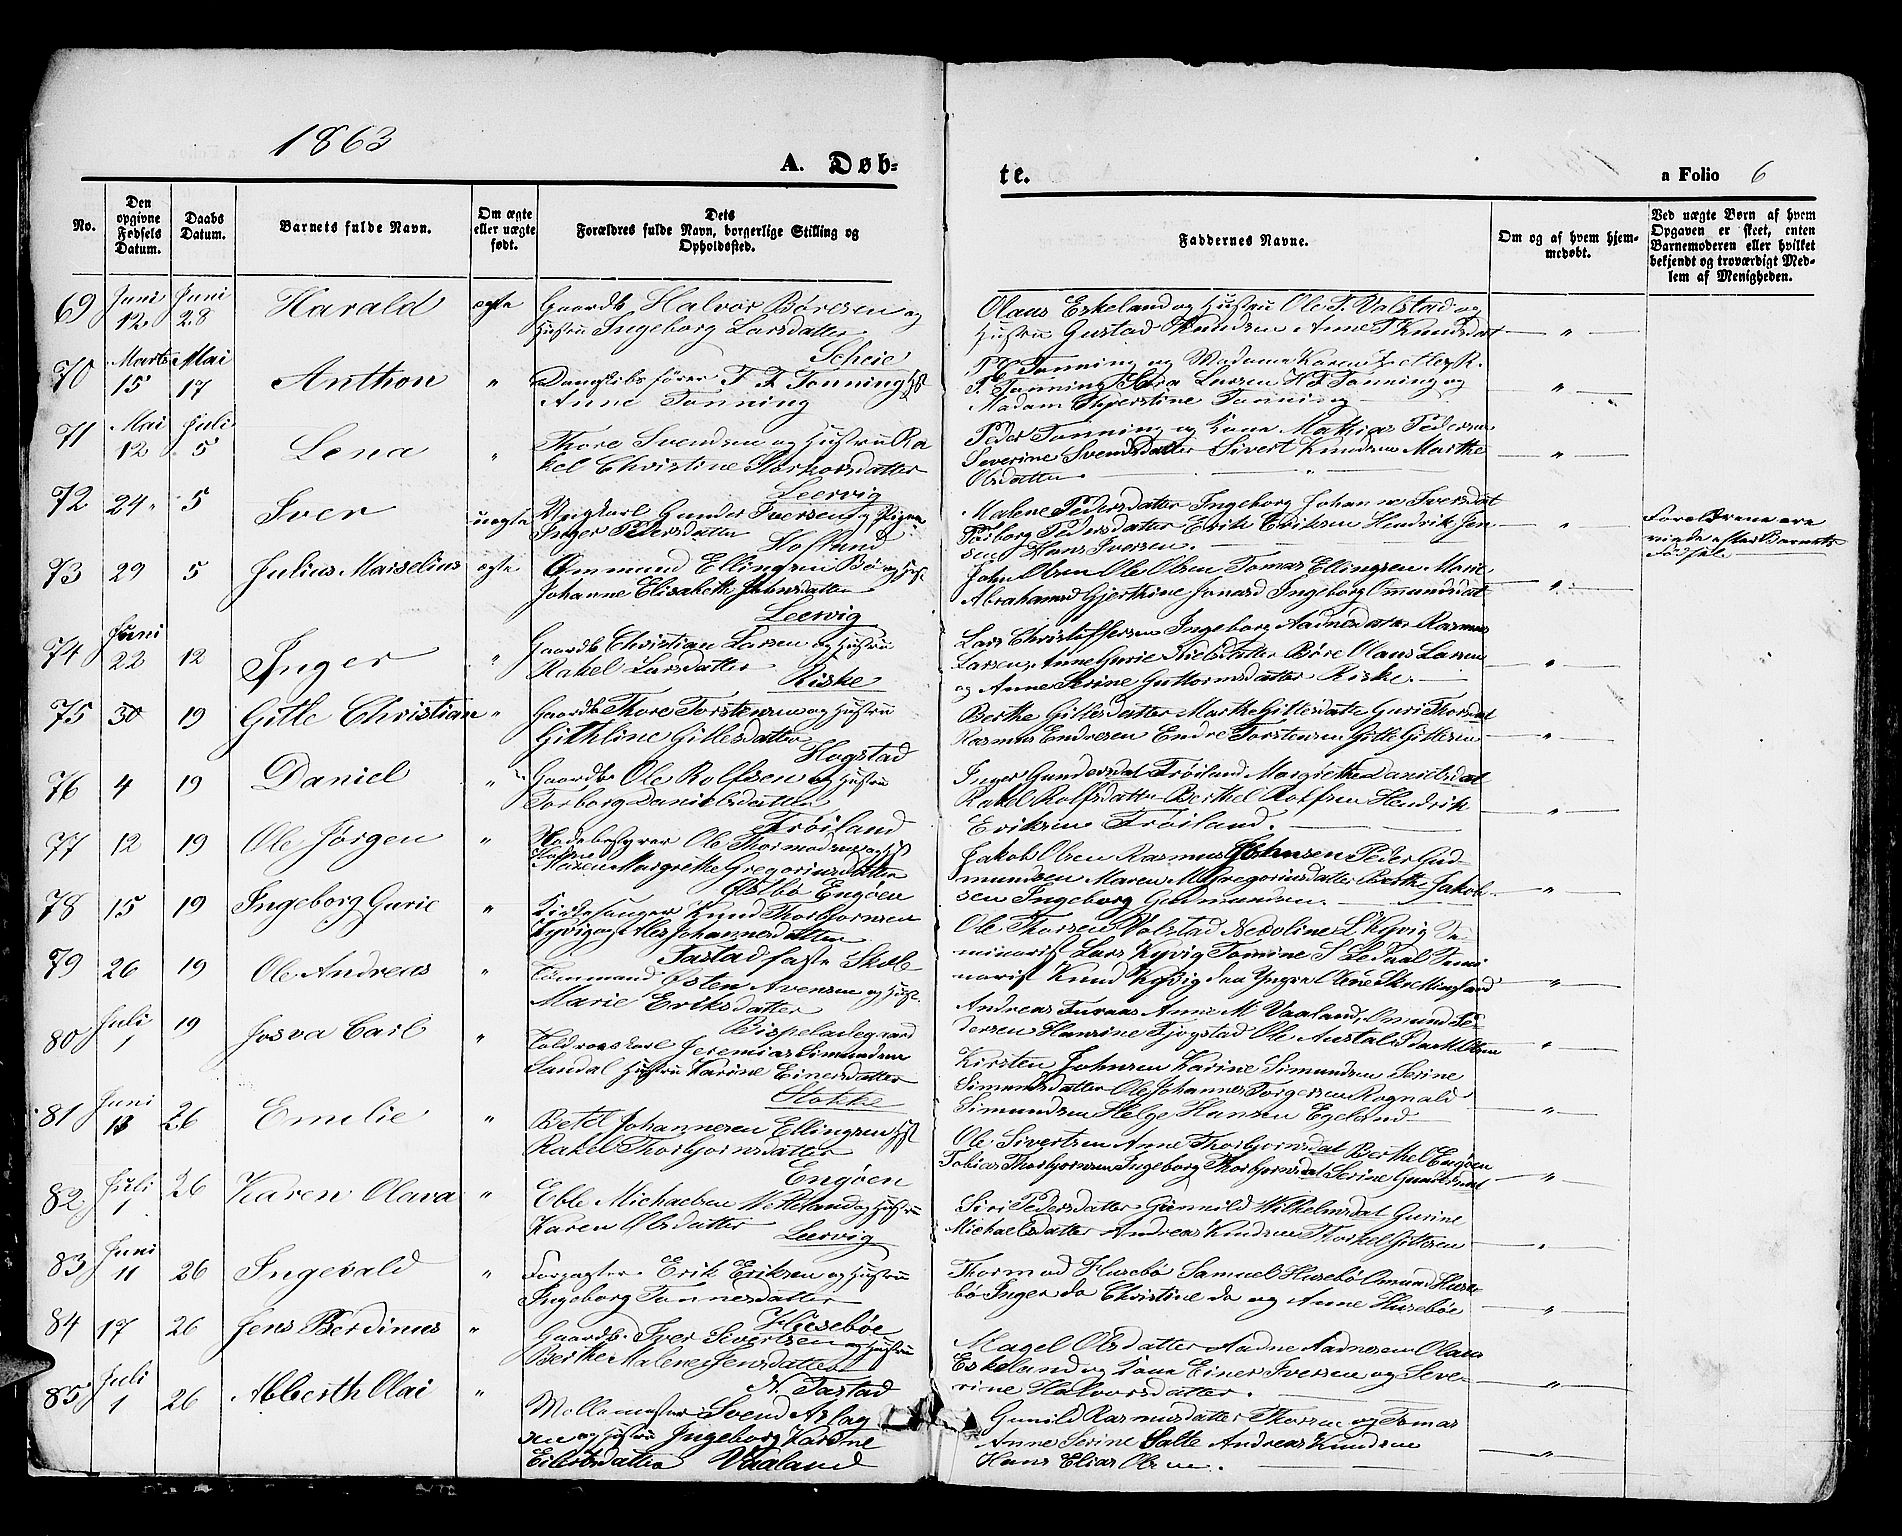 1863
A. Døb-
te.
a Folio 6
No.
Den opgivne Fødsels Datum.
Daabs Datum.
Barnets fulde Navn.
Om ægte eller uægte født.
Dets Forældres fulde Navn, borgerlige Stilling og Opholdssted.
Faddernes Navne.
Om og af hvem hjemmedøbt.
Ved uægte Børn af hvem Opgaven er skeet, enten Barnemoderen eller hvilket bekjendt og troværdigt Medlem af Menigheden.
69 Juni 12 Juni 28 Harald ægte
Gaardb. Halvor Børesen og
Hustru Ingeborg Larsdatter
Scheie
Olaus Eskeland og Hustru Ole T. Valstad og
Hustru Gustad Knudsen Anne T Knudsdat — " —
70 Marts 15 Mai 17 Anthon "
Dampskibsfører T. T. Tonning Hst
Anne Tonning
Tonning og Madame Karen
T. Tonning Lassen H T Tonning og
Madam Kjerstine Tonning — " —
71 Mai 12 Juli 5 Lena "
Thore Svendsen og Hustru Ra
kel Christine Storkorsdatter
Leervig
Peder Tonning og Kona Mathias Pedersen
Severine Svendsdatter Sivert Knudsen Marthe
Olsdatter — " —
72 24 5 Iver uægte
Ungkarl Gunder Iversen og Pigen
Inger Pedersdatter
Hofland
Malene Pedersdatter Ingeborg Johanne Iversdat
Torborg Pedersdatter Erik Eriksen Hendrik Jen-
sen Hans Iversen. — " —
Forældrene ere
viede efter Barnets
Fødsel
73 29 5 Julius Marselius ægte
Ommund Ellingsen Bø og Hust
Johanne Elisabeth Johnsdatter
Leervig
John Olsen Ole Olsen Tomas Ellingsen
Abrahamsd Gjerthine Jonasd Ingeborg Omundsdat — " —
74 Juni 22 12 Inger "
Gaardb. Christian Larsen og Hustru
Rakel Larsdatter
Riske
Lars Christoffersen Ingeborg Aadnesdatter Rasmus
Larsen Anne Gurie Nielsdatter Børe Olaus Larsen
og Anne Serine Guttormsdatter Riske. — " —
75 30 19 Gitle Christian "
Gaardb. Thore Torstensen og Hustru
Githline Gitlesdatter
Hogstad
Berthe Gitlesdatter Marthe Gitlesdatte Guri Thorsdat
Rasmus Endresen Endre Torstensen Gitle Gitlesen — " —
76 4 19 Daniel "
Gaardb. Ole Rolfsen og Hustru
Torborg Danielsdatter
Trøiland
Inger Gundersdat Trøiland Margrethe Danielsdat
Rakel Rolfsdatter Berthel Rolfsen Hendrik
Eriksen Trøiland. — " —
77 12 19 Ole Jørgen "
Ole Thormodsen og Hst
Maren Margrethe Gregoriusdatter
Østbø Engøen
Jakob Olsen Rasmus Johnsen Peder Gud-
mundsen Maren M Gregoriusdatter Berthe Jakob-
sen Ingeborg Gudmundsen. — " —
78 15 19 Ingeborg Gurie "
Kirkesanger Knud Thorbjørnsen
Kyvig og Johannesdatter
Tastad faste Skole
Ole Thorsen Valstad Nedoline L Kyvig Se-
minarist Lars Kyvig Tomine S Ledaal Semi
narist Knud Kyvig den Yngre Olene Skrettingland — " —
79 26 19 Ole Andreas "
Østen Avensen og Hust.
Marie Eriksdatter
Bispeladegaard
Andreas Furaas Anne M Vaaland, Omund Pe-
dersen Hansine Tjøgstad Ole Austali Olsen — " —
80 Juli 1 19 Josva Carl "
Toldroerskarl Jeremias Simundsen
Sandal Hustru Karine Einersdatter
Stokke
Kirsten Johnsen Karine Simundsen Serine
Simundsdatter Ole Johannes Torgersen Rognald
Simundsen Helge Hansen Egeland — " —
81 Juni 13 26 Emilie "
Betel Johannesen Ellingsen Hst
Rakel Thorbjørnsdatter
Engøen
Ole Sivertsen Anne Thorbjørnsdat Berthel Engøen
Tobias Thorbjørnsen Ingeborg Thorbjørnsdat Serine Gundersdat — " —
82 Juli 1 26 Karen Olava "
Eble Michaelsen Vetteland og Hustru
Karen Olsdatter
Leervig
Siri Pedersdatter Gunnild Wilhelmsdat Gurine
Michaelsdatter Andreas Knudsen Thorkel Gitlesen — " —
83 Juni 11 26 Ingevald "
Forpagter Erik Eriksen og Hustru
Ingeborg Tonnesdatter
Husebøe
Thormod Husebø Samuel Husebø Omund Huse
bø Inger do Christine do og Anne Husebøe — " —
84 17 26 Jens Berdinus "
Gaardb. Iver Sivertsen og Hustru
Berthe Malene Jensdatter
N. Tastad
Magel Olsdatter Aadne Aadnesen Olaus
Eskeland og Kona Einer Iversen og Seve-
rine Halvorsdatter. — " —
85 Juli 1 26 Albert Olai "
Møllemester Svend Aslag
sen og Hustru Ingeborg Karine
Eilertsdatter Vaaland
Gunild Rasmusdatter Thorsen og Tomas
Anne Serine Salte Andreas Knudsen
Hans Elias Olsen. — " —